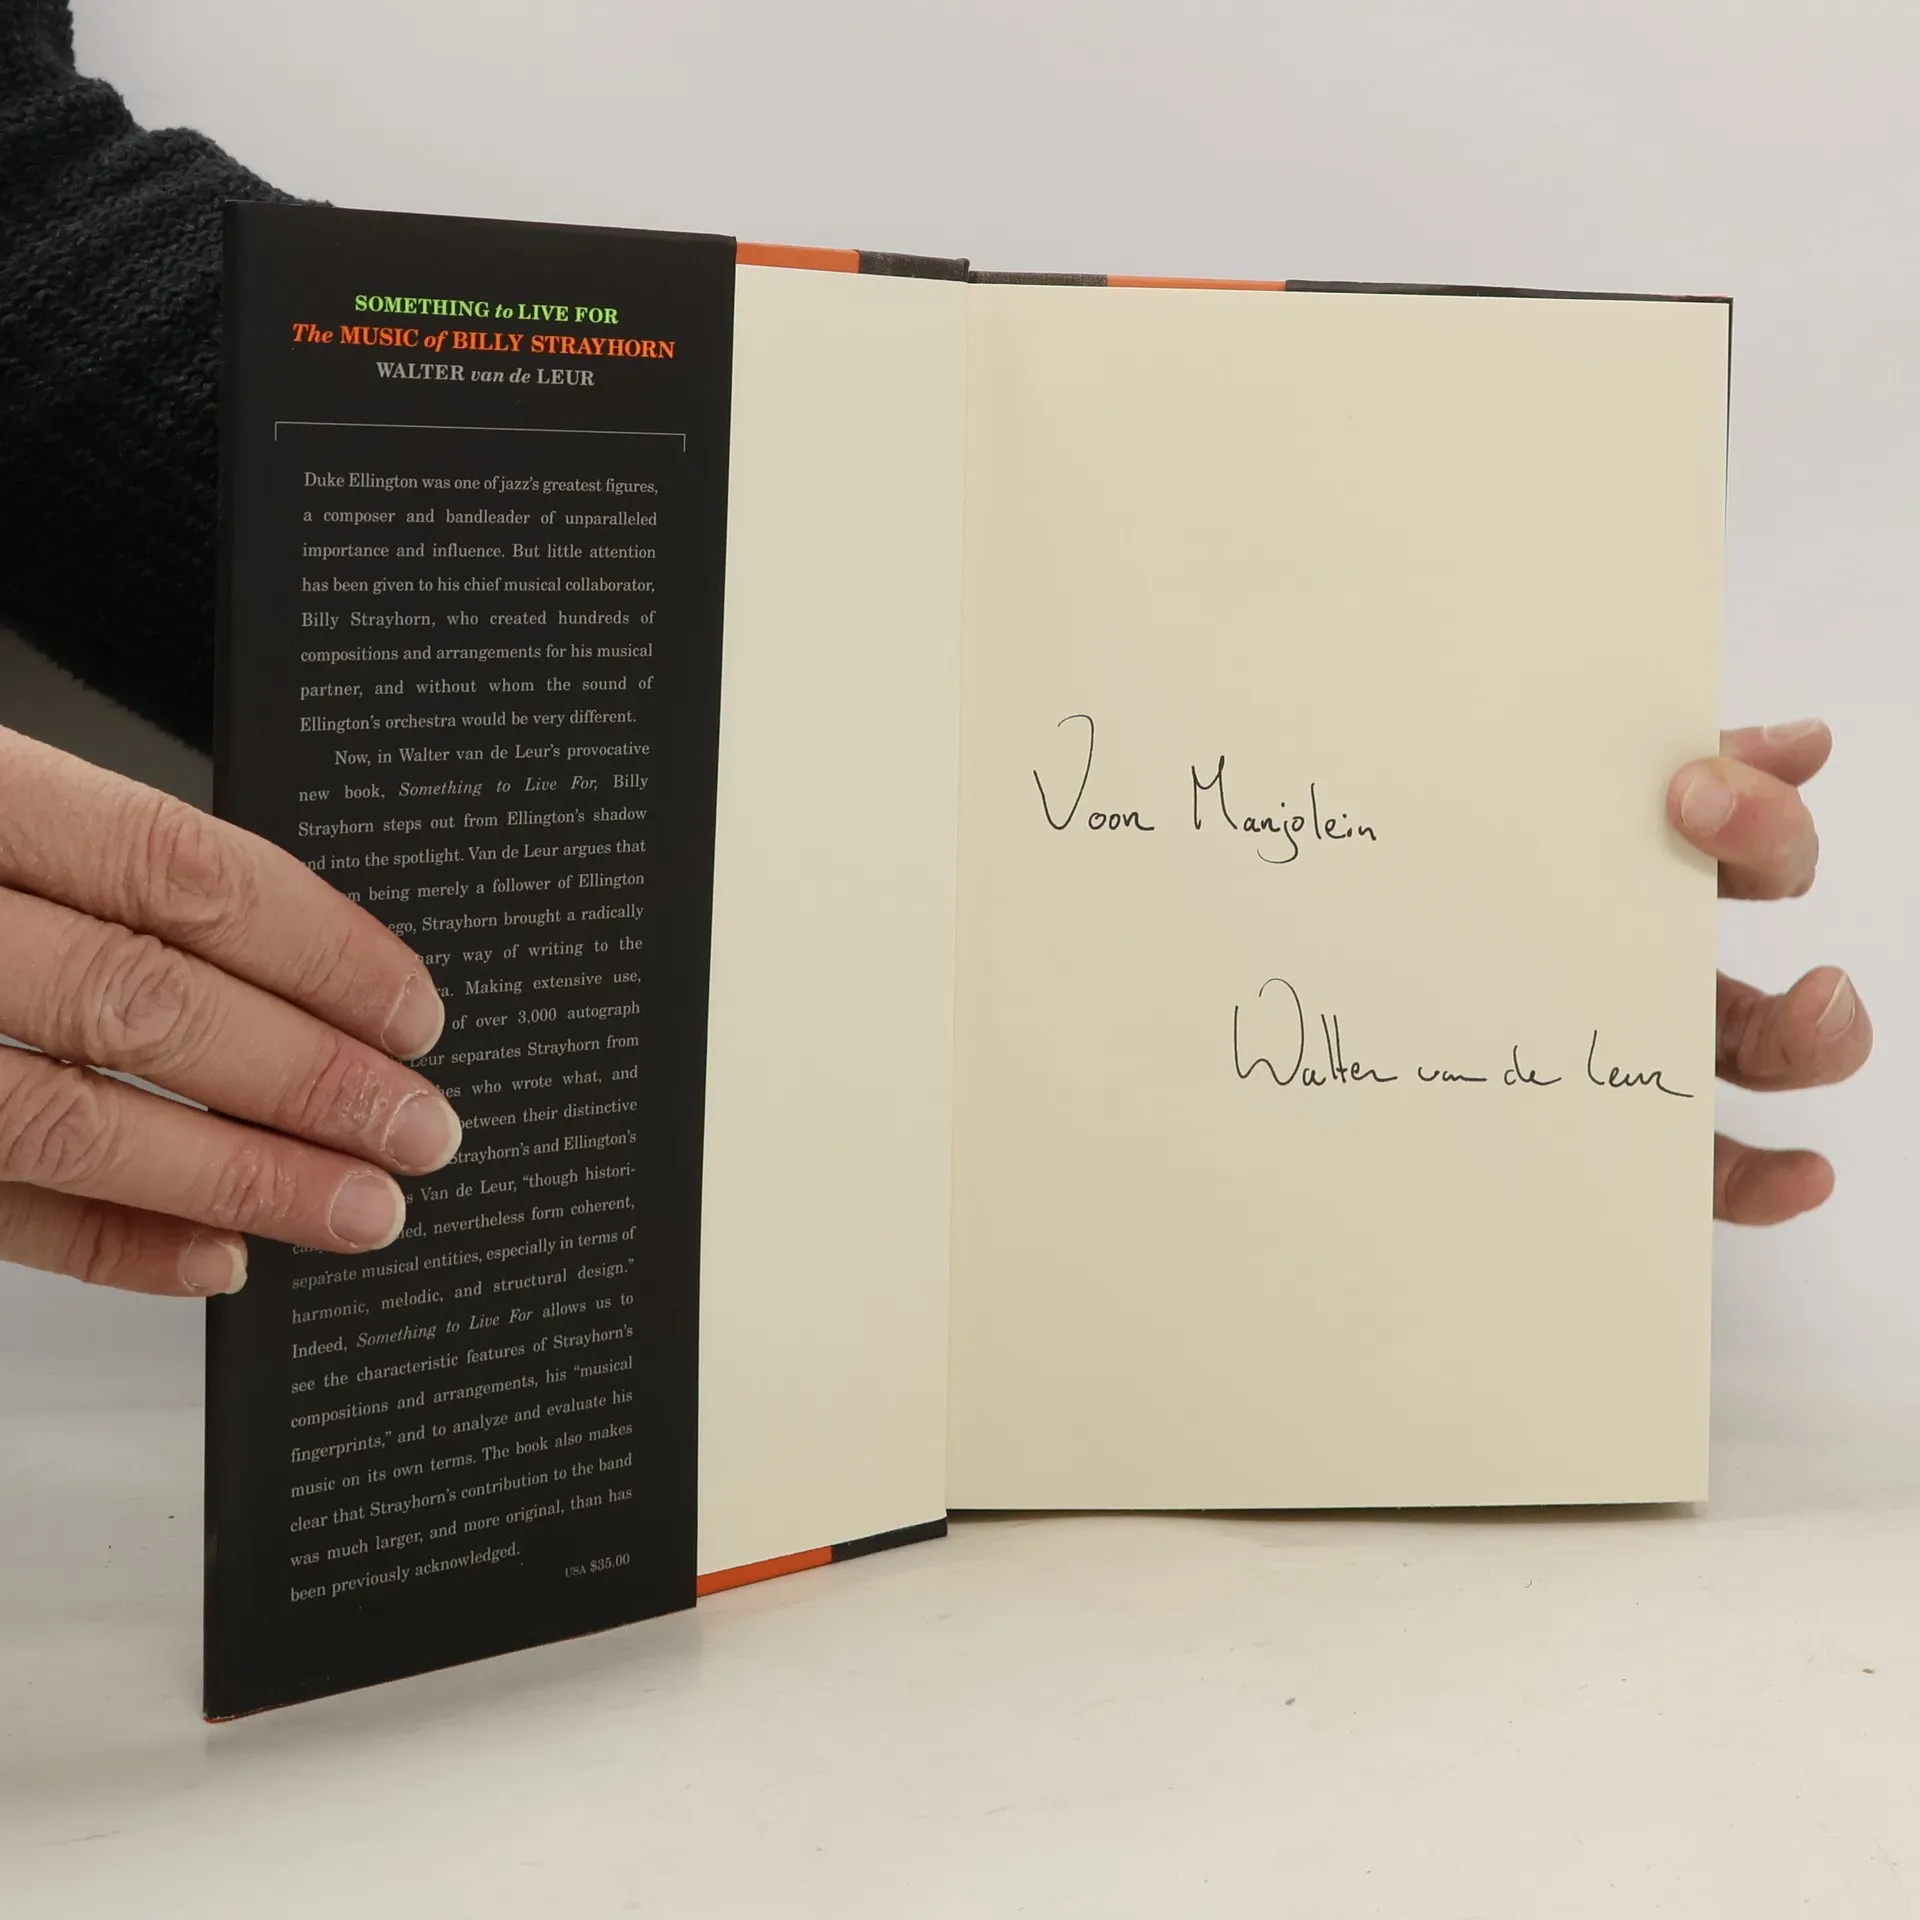 SOMETHING to LIVE FOR
The MUSIC of BILLY STRAYHORN
WALTER van de LEUR
Duke Ellington was one of jazz's greatest figures,
a composer and bandleader of unparalleled
importance and influence. But little attention
has been given to his chief musical collaborator,
Billy Strayhorn, who created hundreds of
compositions and arrangements for his musical
partner, and without whom the sound of
Ellington's orchestra would be very different.
Now, in Walter van de Leur's provocative
new book, Something to Live For, Billy
Strayhorn steps out from Ellington's shadow
and into the spotlight. Van de Leur argues that
being merely a follower of Ellington
ego, Strayhorn brought a radically
way of writing to the
Making extensive use,
of over 3,000 autograph
Leur separates Strayhorn from
who wrote what, and
between their distinctive
Strayhorn's and Ellington's
Van de Leur, "though histori-
nevertheless form coherent,
separate musical entities, especially in terms of
harmonic, melodic, and structural design."
Indeed, Something to Live For allows us to
see the characteristic features of Strayhorn's
compositions and arrangements, his "musical
fingerprints," and to analyze and evaluate his
music on its own terms. The book also makes
clear that Strayhorn's contribution to the band
was much larger, and more original, than has
been previously acknowledged.
USA $35.00
Voor Marjolein
Walter van de Leur